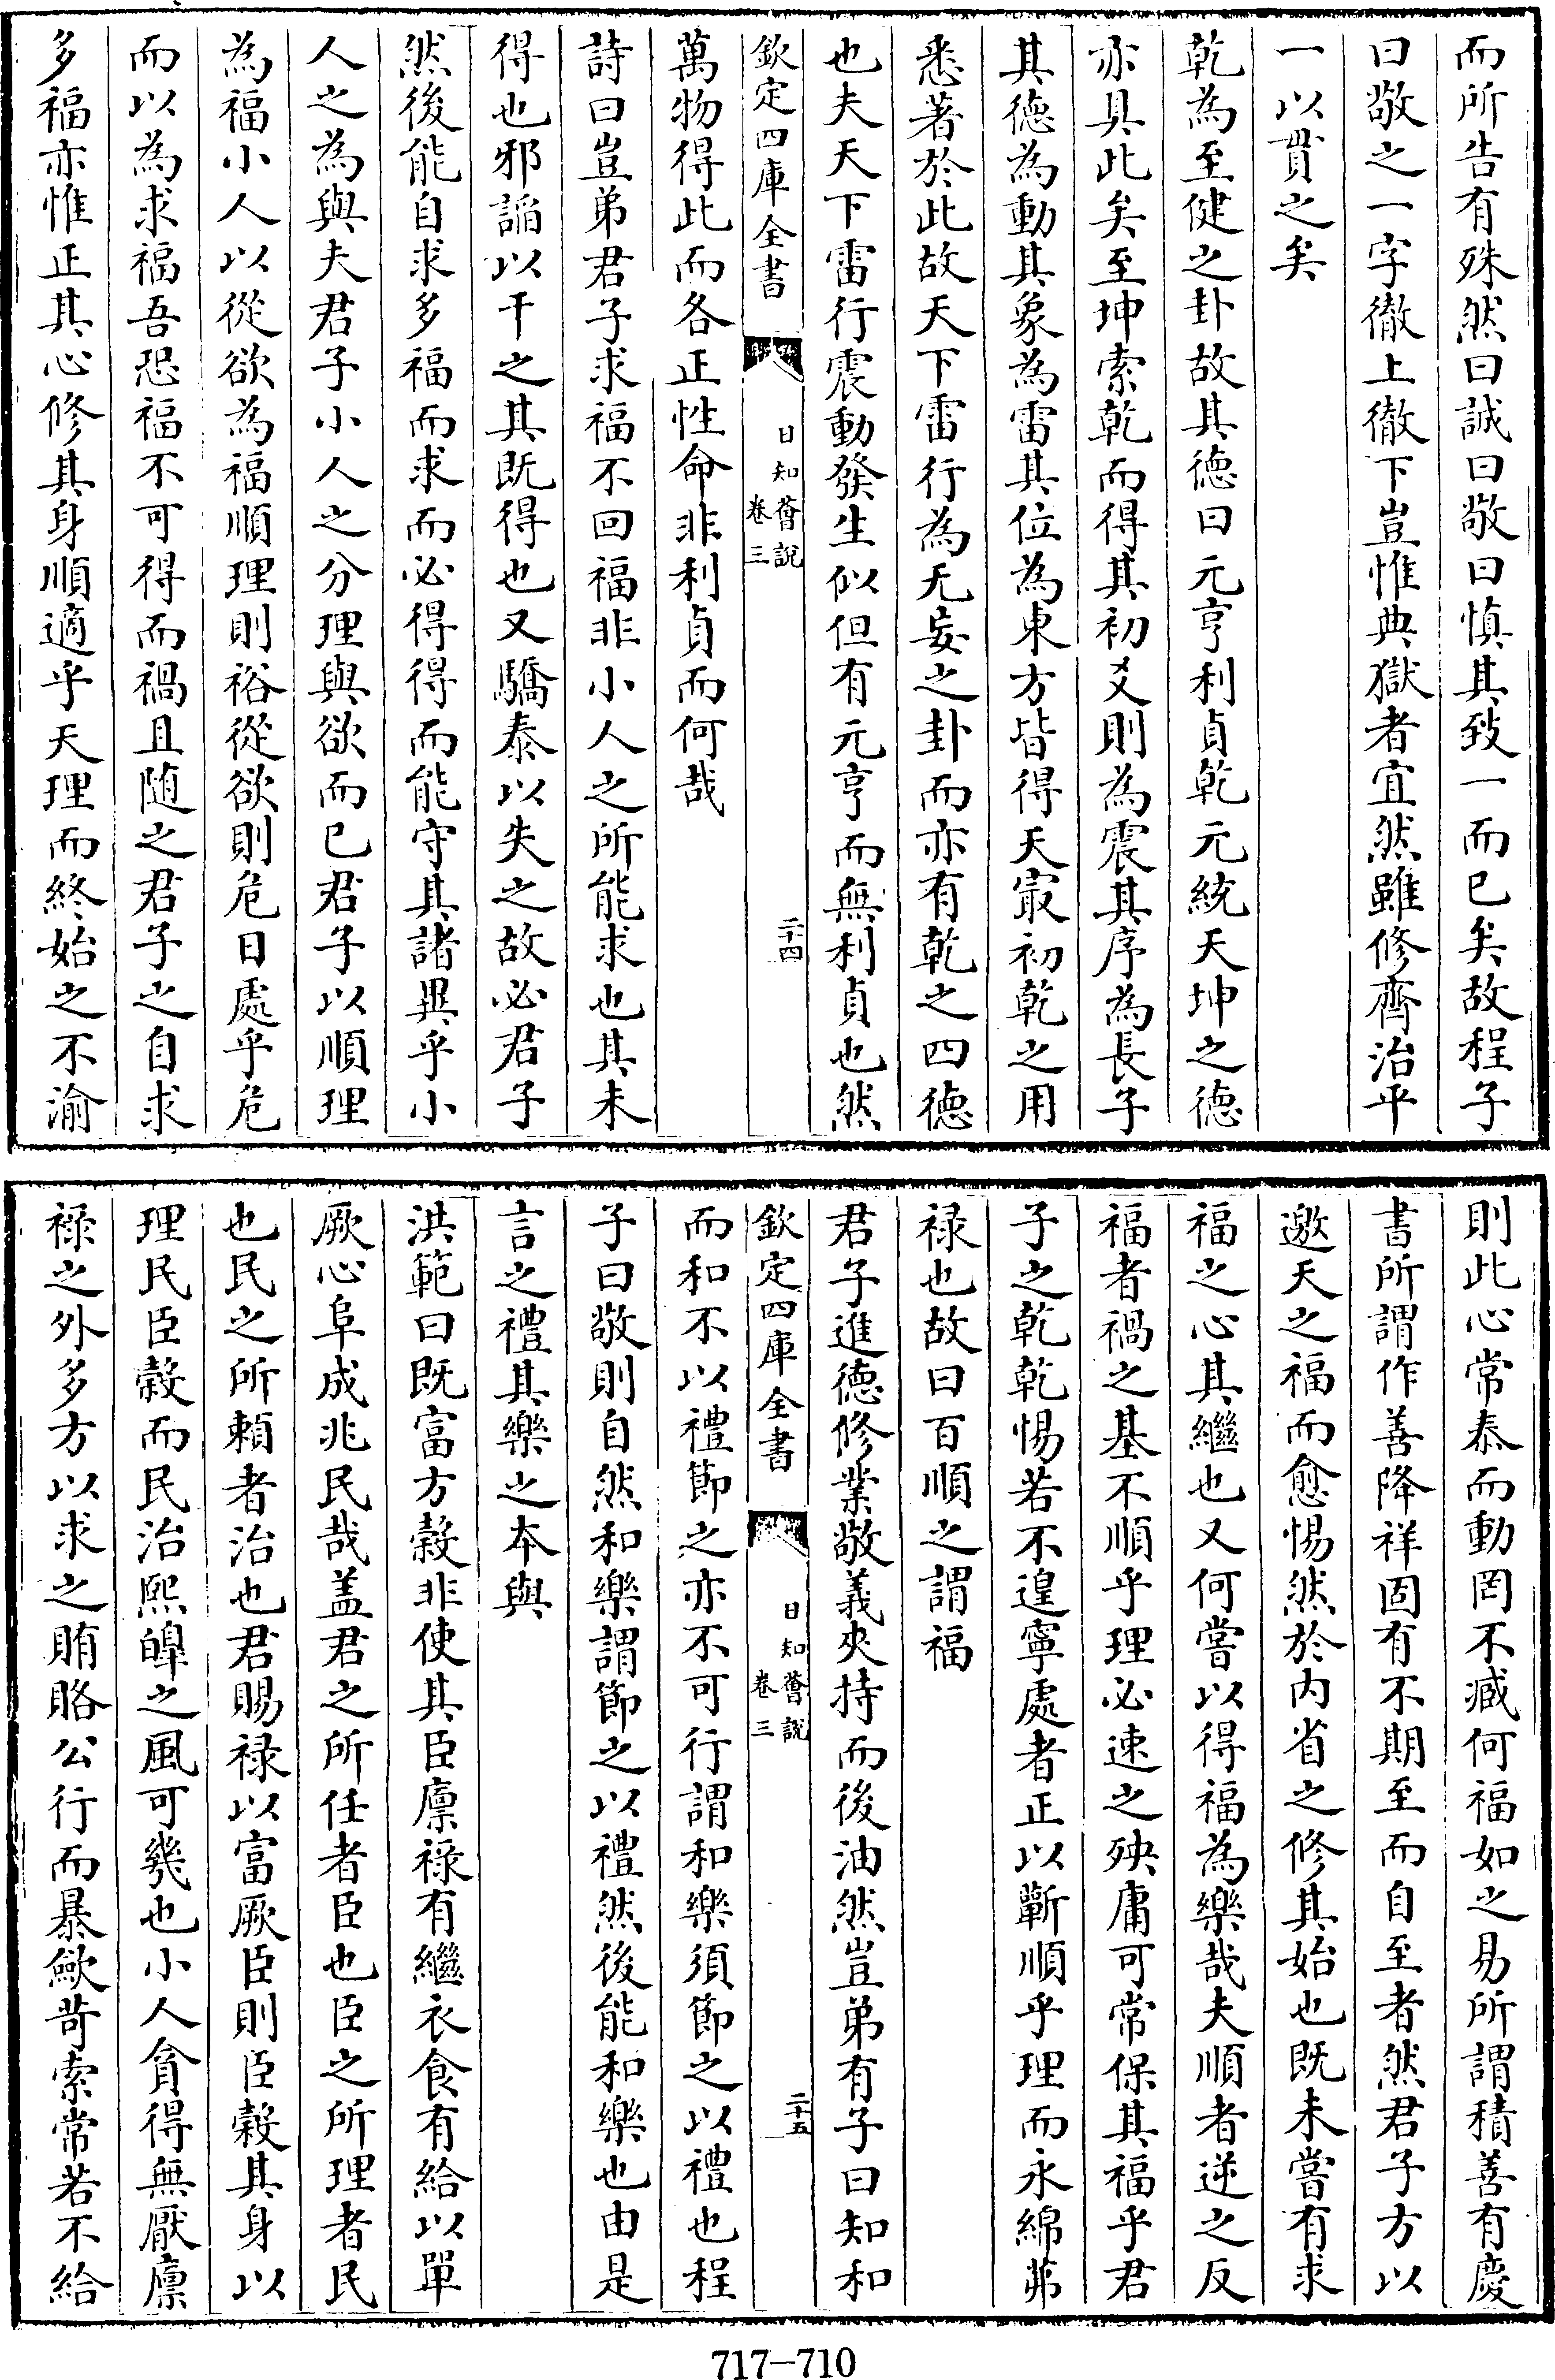 而所告有殊然曰誠曰敬曰慎其致一而已矣故程子
曰敬之一字徹上徹下豈惟典獄者宜然雖修齊治平
一以貫之矣
乾為至健之卦故其德曰元亨利貞乾元統天坤之德
亦具此矣至坤索乾而得其初爻則為震其序為長子
其德為動其象為雷其位為東方皆得天㝡初乾之用
悉著於此故天下雷行為无妄之卦而亦有乾之四德
也夫天下雷行震動發生似但有元亨而無利貞也然
欽定四庫全書
日知薈說
卷三
二十四
萬物得此而各正性命非利貞而何哉
詩曰豈弟君子求福不回福非小人之所能求也其未
得也邪謟以干之其既得也又驕泰以失之故必君子
然後能自求多福而求而必得得而能守其諸異乎小
人之為與夫君子小人之分理與欲而已君子以順理
為福小人以從欲為福順理則裕從欲則危日處乎危
而以為求福吾恐福不可得而禍且随之君子之自求
多福亦惟正其心修其身順適乎天理而終始之不渝
則此心常泰而動罔不臧何福如之易所謂積善有慶
書所謂作善降祥固有不期至而自至者然君子方以
邀天之福而愈惕然於内省之修其始也既未嘗有求
福之心其繼也又何嘗以得福為樂哉夫順者逆之反
福者禍之基不順乎理必速之殃庸可常保其福乎君
子之乾乾惕若不遑寧處者正以蘄順乎理而永綿茀
禄也故曰百順之謂福
君子進德修業敬義夾持而後油然豈弟有子曰知和
欽定四庫全書
日知薈說
卷三
二十五
而和不以禮節之亦不可行謂和樂須節之以禮也程
子曰敬則自然和樂謂節之以禮然後能和樂也由是
言之禮其樂之本與
洪範曰既富方榖非使其臣廪禄有繼衣食有給以單
厥心阜成兆民哉盖君之所任者臣也臣之所理者民
也民之所頼者治也君賜禄以富厥臣則臣榖其身以
理民臣榖而民治熙皥之風可幾也小人貪得無厭廪
禄之外多方以求之賄賂公行而暴歛苛索常若不給
717-710